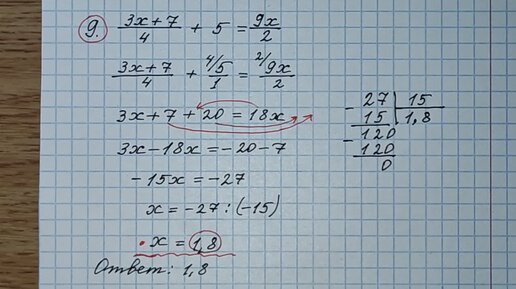 9. (3x + 7)/4 + 5 = 9x/2
(3x + 7)/4 + 4/5/1 = 2/9x/2
3x + 7 + 20 = 18x
3x - 18x = -20 - 7
- 15x = -27
x = -27 : (-15)
x = 1,8
Ответ: 1,8
- 27 | 15
15 | 1,8
- 120
120
0